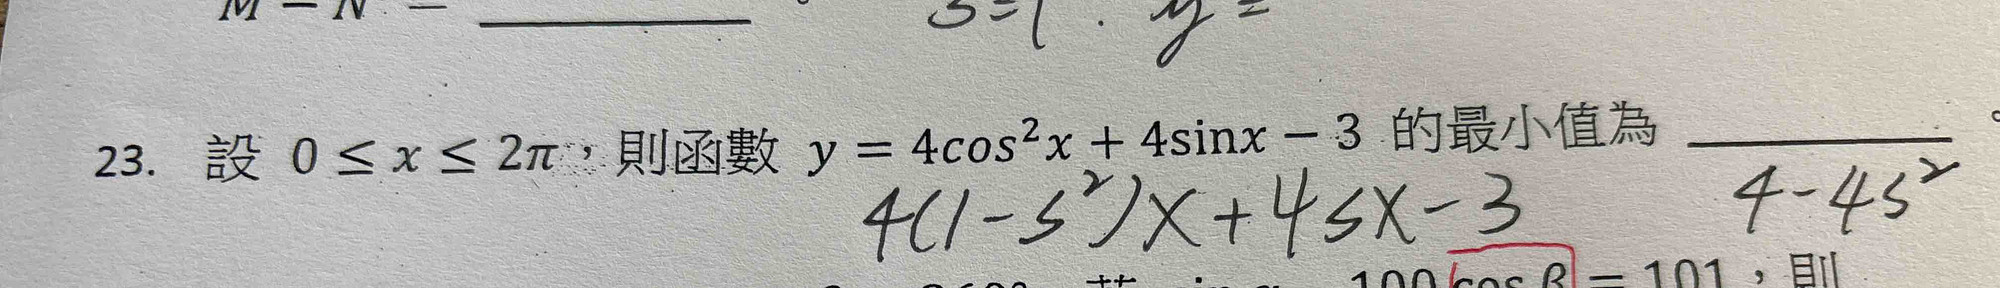 M − N = ________ 。 s=1 . y=
23. 設 0 ≤ x ≤ 2π,則函數 y = 4cos²x + 4sinx − 3 的最小值為 ________ 。
4(1-s²)x+4sx-3 4-4s²
100 cos β = 101,則